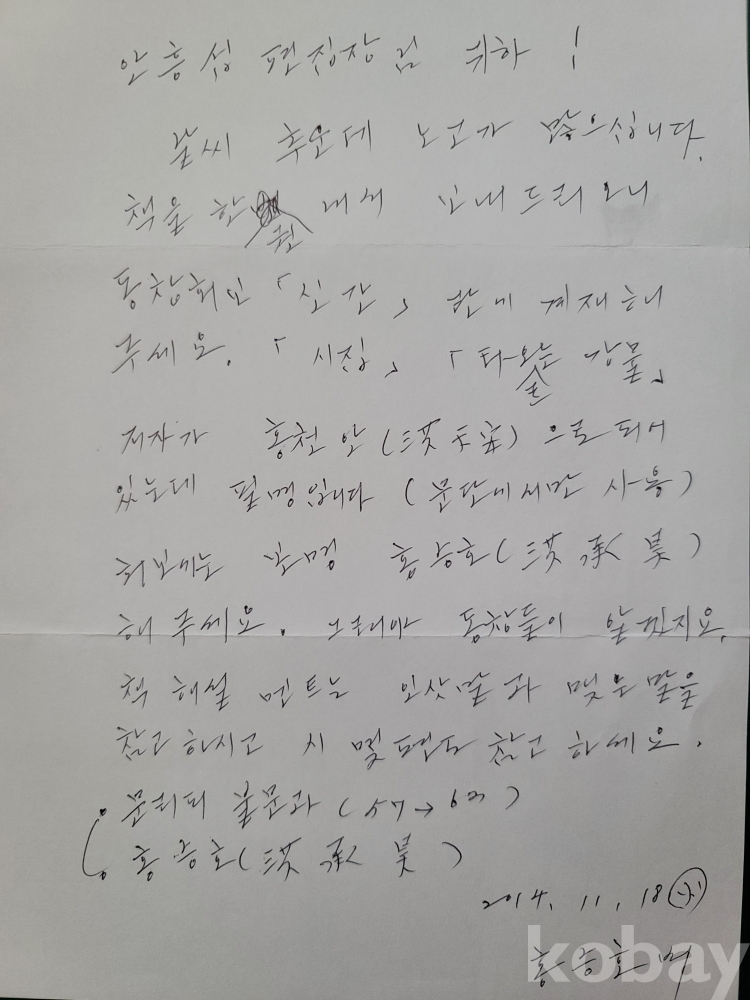 안흥섭 편집장님 귀하!
날씨 추운데 노고가 많으십니다.
책을 한권 내서 보내드리오니
동창회보 「신간」란에 게재해
주세요. 「시집」, 「타오르는 강물」
저자가 홍천안(洪天安)으로 되어
있는데 필명입니다 (문단에서만 사용)
회보에는 본명 홍승호(洪承昊)
해 주세요. 그래야 동창들이 알겠지요.
책 해설 멘트는 인삿말과 맺는말을
참고하시고 시 몇편도 참고하세요.
문리대 불문과 (57→63)
홍승호(洪承昊)
2014. 11. 18
홍승호
kobay